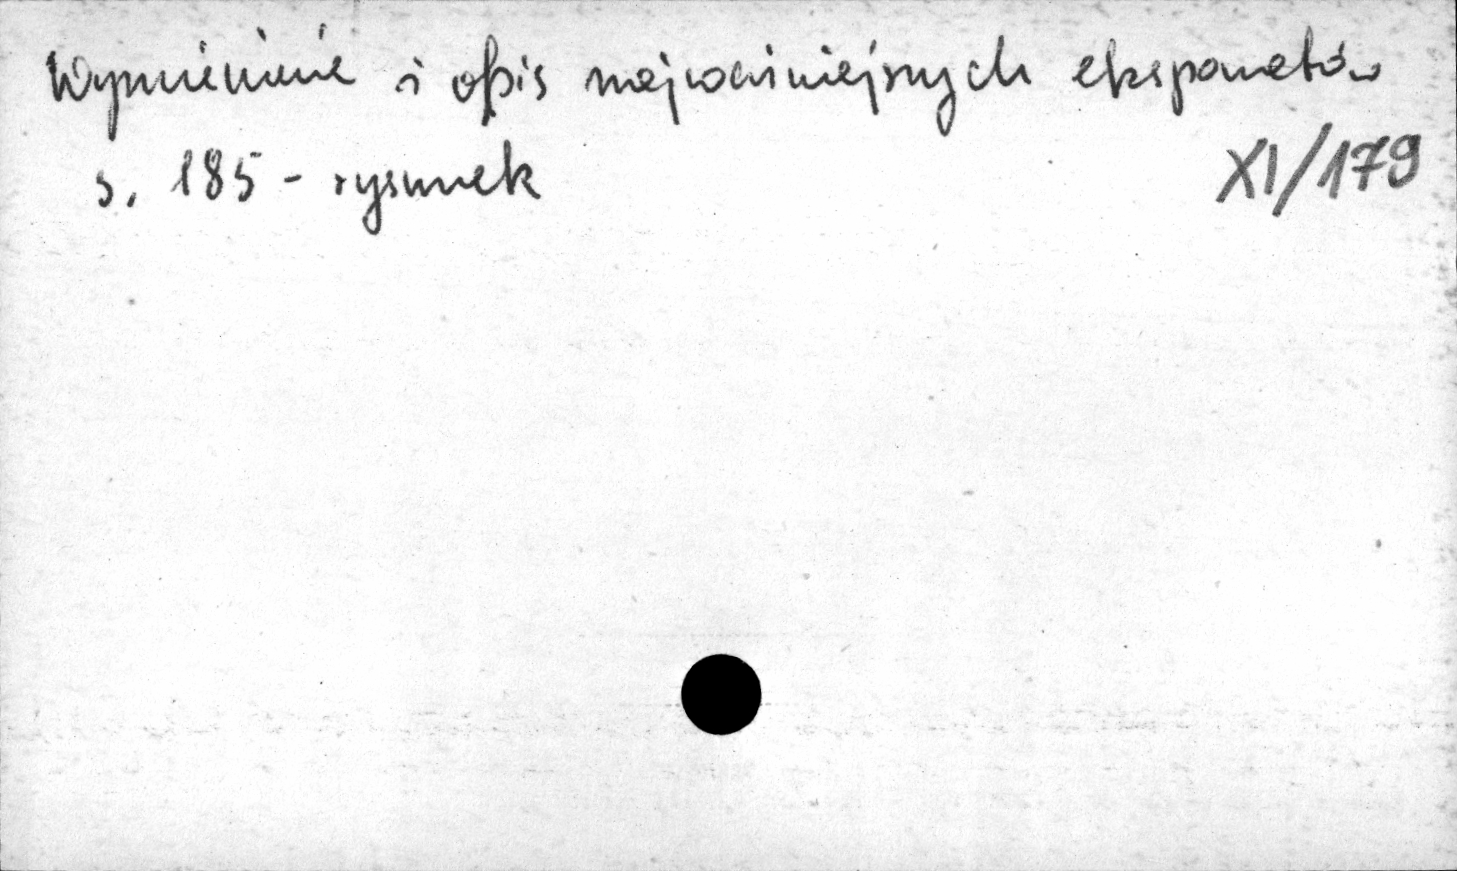 Wymienienie i opis najważniejszych eksponatów
s. 185 - rysunek
XI/179